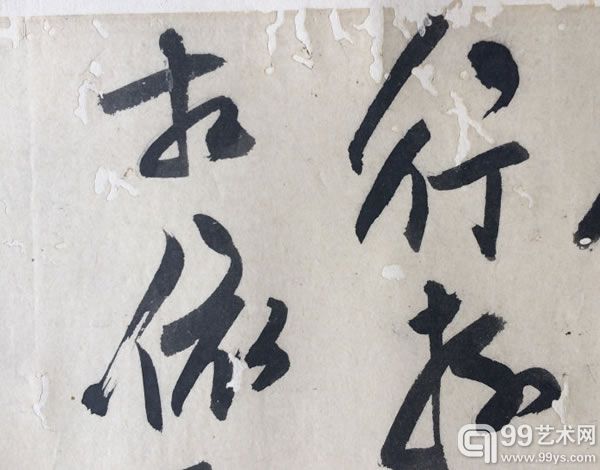 行
相依
99艺术网
www.99ys.com